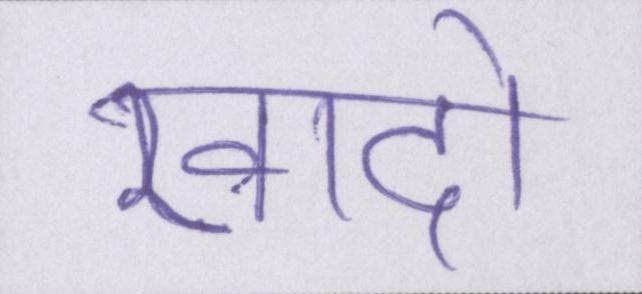 खादो